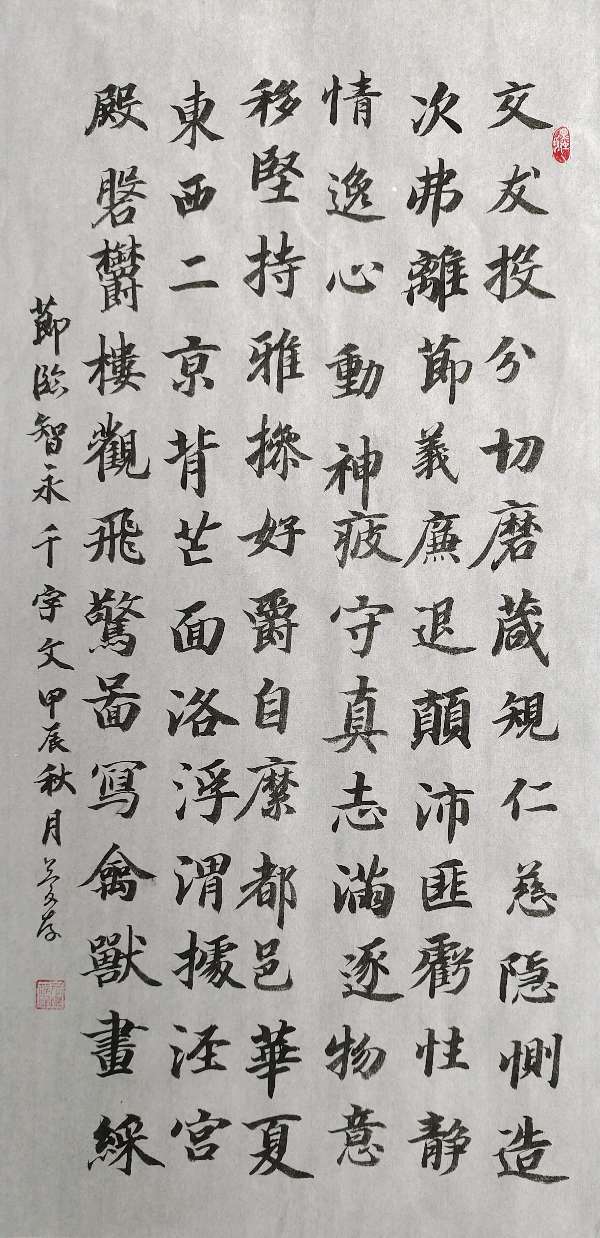 交友投分切磨葴規仁慈隱惻造
次弗離節義廉退顛沛匪虧性靜
情逸心動神疲守真志滿逐物意
移堅持雅操好爵自縻都邑華夏
東西二京背芒面洛浮渭據涇宮
殿磐欝樓觀飛驚啚寫禽獸畫綵
節臨智永千字文甲辰秋月